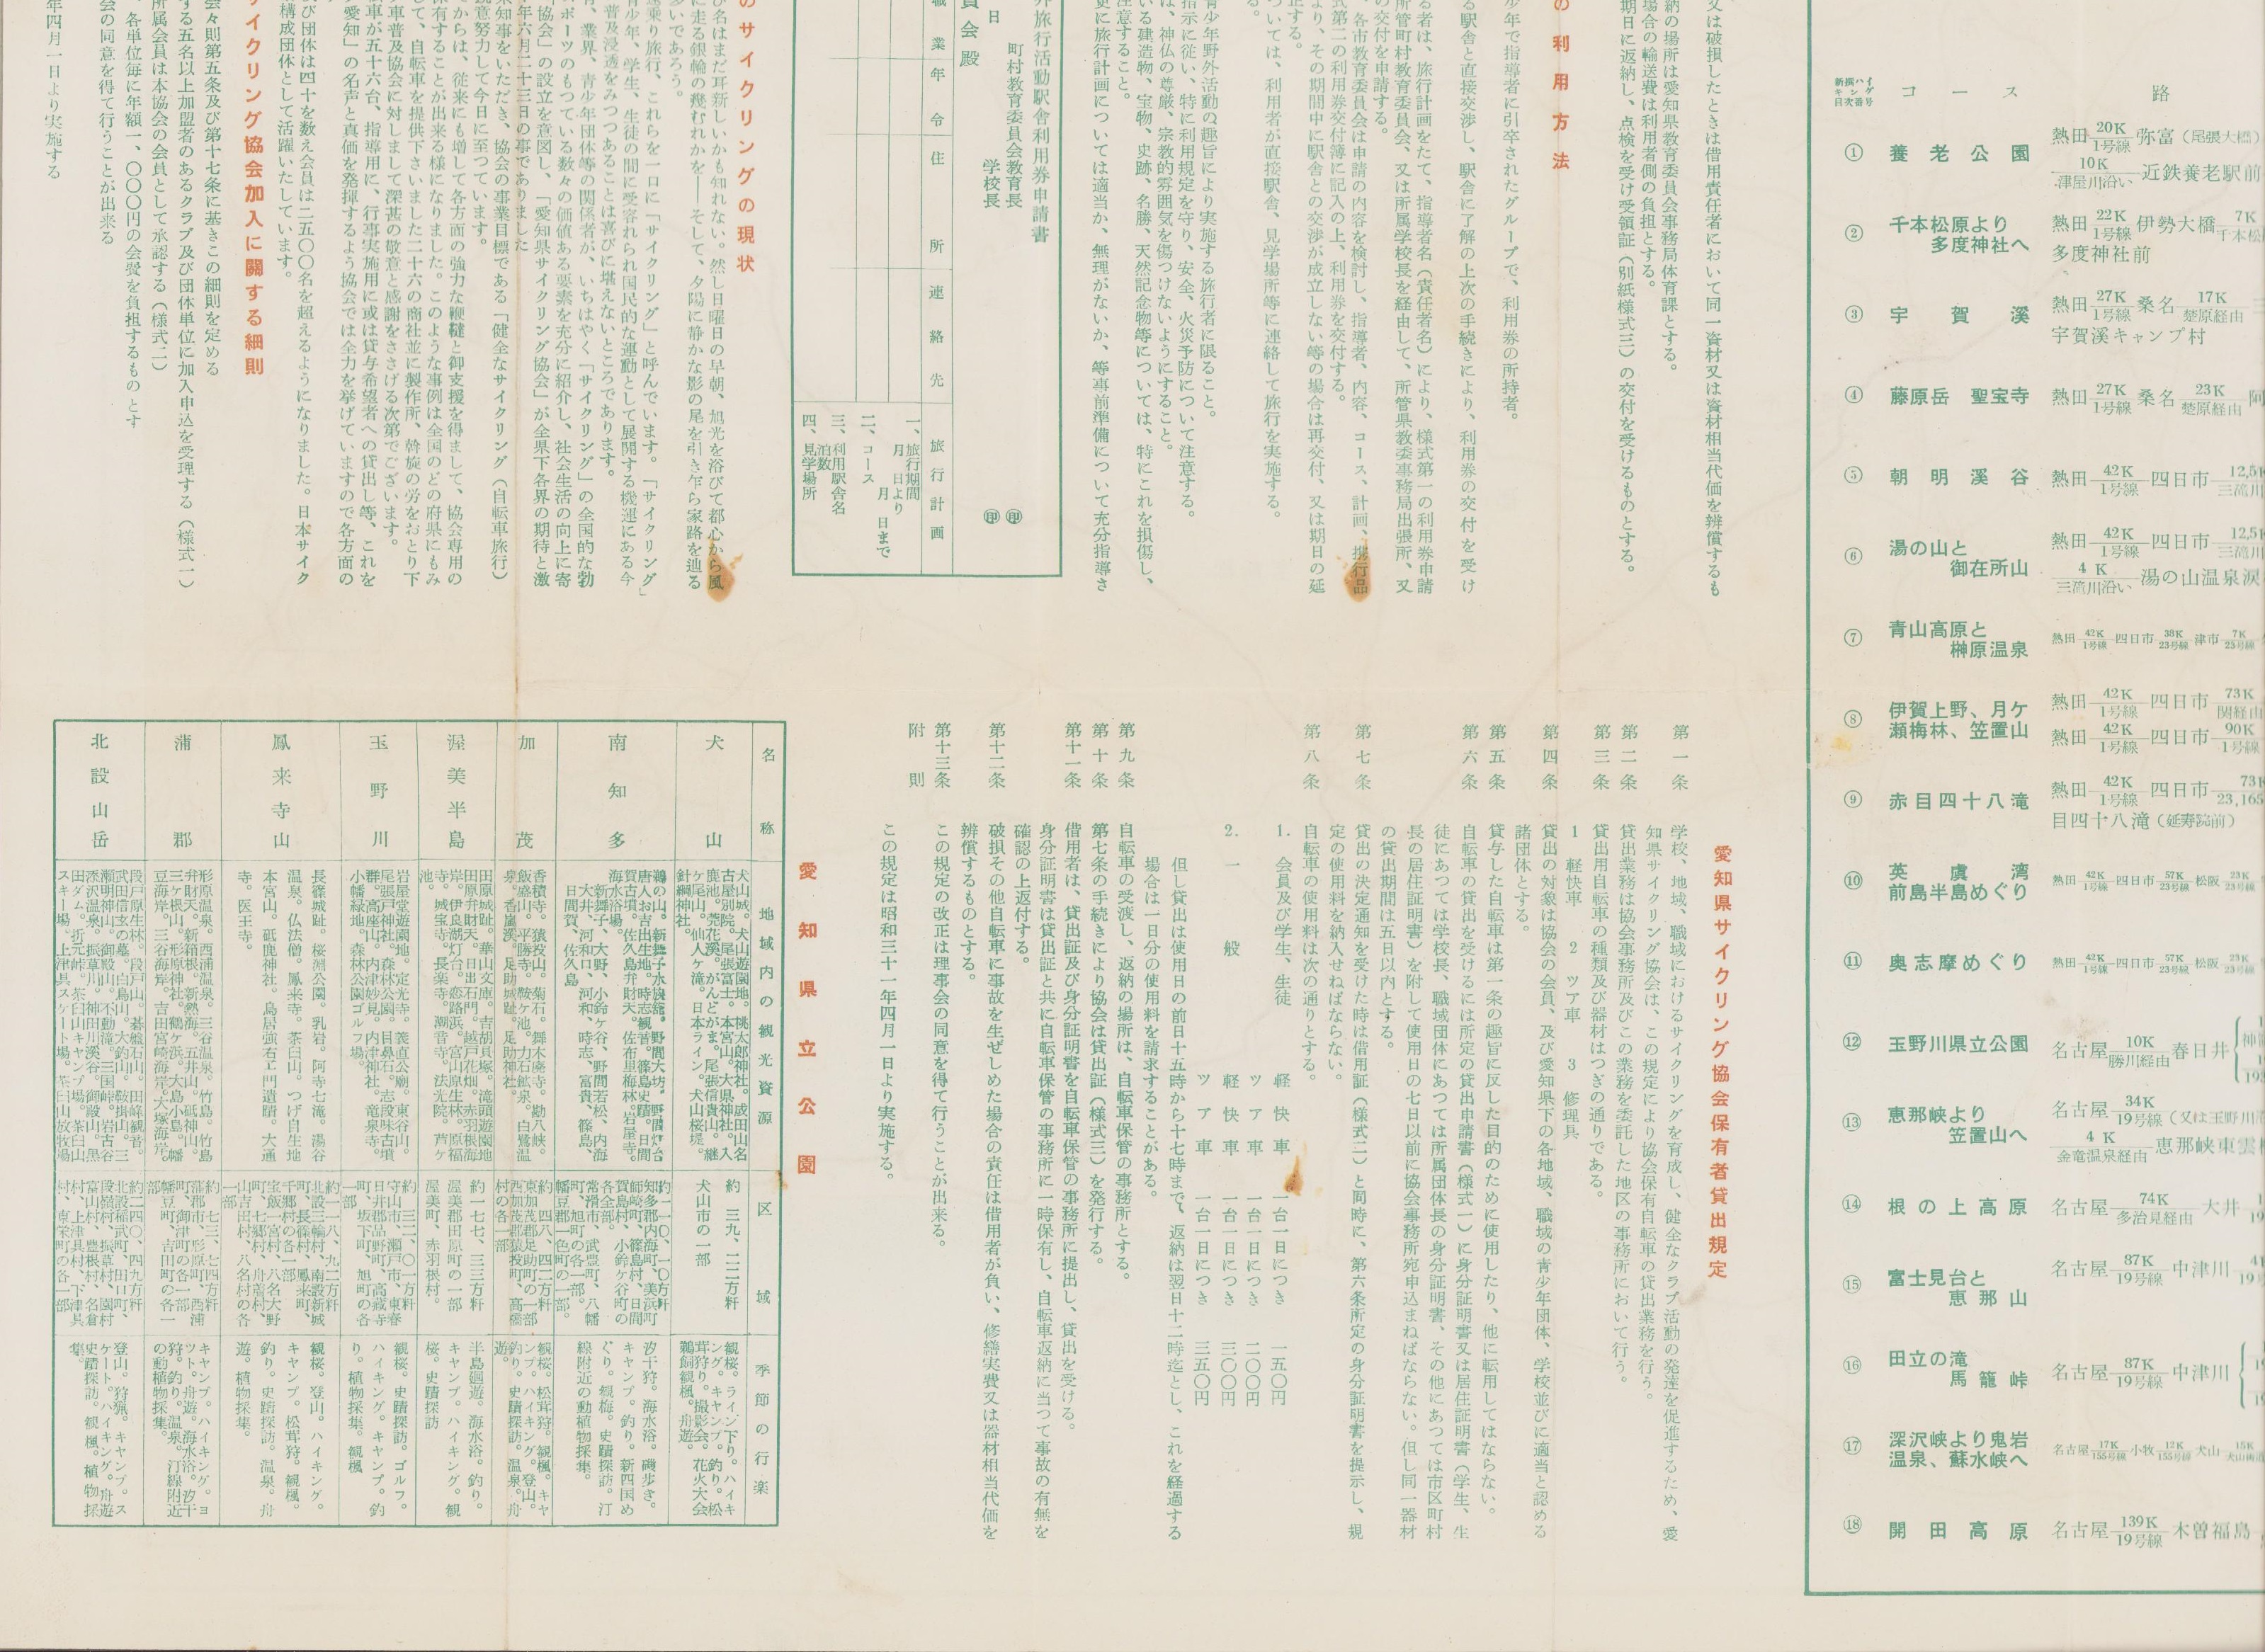 又は破損したときは借用責任者において同一資材又は資材相当代価を辨償するも
納の場所は愛知県教育委員会事務局体育課とする。
場合の輸送費は利用者側の負担とする。
期日に返納し、点検を受け受領証（別紙様式三）の交付を受けるものとする。
の利用方法
少年で指導者に引卒されたグループで、利用券の所持者。
る駅舎と直接交渉し、駅舎に了解の上次の手続きにより、利用券の交付を受け
る者は、旅行計画をたて、指導者名（責任者名）により、様式第一の利用券申請
所管町村教育委員会、又は所属学校長を経由して、所管県教委事務局出張所、又
の交付を申請する。
、各市教育委員会は申請の内容を検討し、指導者、内容、コース、計画、携行品
式第二の利用券交付簿に記入の上、利用券を交付する。
より、その期間中に駅舎との交渉が成立しない等の場合は再交付、又は期日の延
正する。
ついては、利用者が直接駅舎、見学場所等に連絡して旅行を実施する。
る。
青少年野外活動の趣旨により実施する旅行者に限ること。
指示に従い、特に利用規定を守り、安全、火災予防について注意する。
は、神仏の尊厳、宗教的雰囲気を傷つけないようにすること。
いる建造物、宝物、史跡、名勝、天然記念物等については、特にこれを損傷し、
注意すること。
更に旅行計画については適当か、無理がないか、等事前準備について充分指導さ
外旅行活動駅舎利用券申請書
町村教育委員会教育長 ㊞
学校長 ㊞
日
員会殿
職業 年令 住所 連絡先 旅行計画
一、旅行期間
月 日より
月 日まで
二、コース
三、利用駅舎名
泊数
四、見学場所
のサイクリングの現状
び名はまだ耳新しいかも知れない。然し日曜日の早朝、旭光を浴びて都心から風
に走る銀輪の幾むれかを――そして、夕陽に静かな影の尾を引き乍ら家路を辿る
多いであろう。
遠乗り旅行、これらを一日に「サイクリング」と呼んでいます。「サイクリング」
青少年、学生、生徒の間に受容れられ国民的な運動として展開する機運にある今
普及浸透をみつつあることは喜びに堪えないところであります。
、業界、青少年団体等の関係者が、いちはやく「サイクリング」の全国的な勃
スポーツのもつている数々の価値ある要素を充分に紹介し、社会生活の向上に寄
協会」の設立を意図し、「愛知県サイクリング協会」が全県下各界の期待と激
年六月二十三日の事でありました
知事をいただき、協会の事業目標である「健全なサイクリング（自転車旅行）
鋭意努力して今日に至つています。
てからは、従来にも増して各方面の強力な鞭韃と御支援を得まして、協会専用の
保有することが出来る様になりました。このような事例は全国のどの府県にもみ
して、自転車を提供下さいました二十六の商社並に製作所、斡旋の労をおとり下
車普及協会に対しまして深甚の敬意と感謝をささげる次第でございます。
車が五十六台、指導用に、行事実施用に或は貸与希望者への貸出し等、これを
愛知」の名声と真価を発揮するよう協会では全力を挙げていますので各方面の
及び団体は四十を数え会員は二五〇〇名を超えるようになりました。日本サイク
構成団体として活躍いたしています。
サイクリング協会加入に関する細則
会々則第五条及び第十七条に基きこの細則を定める
する五名以上加盟者のあるクラブ及び団体単位に加入申込を受理する（様式一）
所属会員は本協会の会員として承認する（様式二）
、各単位毎に年額一、〇〇〇円の会費を負担するものとす
会の同意を得て行うことが出来る
年四月一日より実施する
愛知県サイクリング協会保有者貸出規定
第一条 学校、地域、職域におけるサイクリングを育成し、健全なクラブ活動の発達を促進するため、愛
知県サイクリング協会は、この規定により協会保有自転車の貸出業務を行う。
第二条 貸出業務は協会事務所及びこの業務を委託した地区の事務所において行う。
第三条 貸出用自転車の種類及び器材はつぎの通りである。
1 軽快車 2 ツア車 3 修理具
第四条 貸出の対象は協会の会員、及び愛知県下の各地域、職域の青少年団体、学校並びに適当と認める
諸団体とする。
第五条 貸与した自転車は第一条の趣旨に反した目的のために使用したり、他に転用してはならない。
第六条 自転車の貸出を受けるには所定の貸出申請書（様式一）に身分証明書又は居住証明書（学生、生
徒にあつては学校長、職域団体にあつては所属団体長の身分証明書、その他にあつては市区町村
長の居住証明書）を附して使用日の七日以前に協会事務所宛申込まねばならない。但し同一器材
の貸出期間は五日以内とする。
第七条 貸出の決定通知を受けた時は借用証（様式二）と同時に、第六条所定の身分証明書を提示し、規
定の使用料を納入せねばならない。
第八条 自転車の使用料は次の通りとする。
1. 会員及び学生、生徒 軽快車 一台一日につき 一五〇円
ツア車 一台一日につき 二〇〇円
2. 一般 軽快車 一台一日につき 三〇〇円
ツア車 一台一日につき 三五〇円
但し貸出は使用日の前日十五時から十七時まで、返納は翌日十二時迄とし、これを経過する
場合は一日分の使用料を請求することがある。
第九条 自転車の受渡し、返納の場所は、自転車保管の事務所とする。
第十条 第七条の手続きにより協会は貸出証（様式三）を発行する。
第十一条 借用者は、貸出証及び身分証明書を自転車保管の事務所に提出し、貸出を受ける。
身分証明書は貸出証と共に自転車保管の事務所に一時保有し、自転車返納に当つて事故の有無を
確認の上返付する。
第十二条 破損その他自転車に事故を生ぜしめた場合の責任は借用者が負い、修繕実費又は器材相当代価を
辨償するものとする。
第十三条 この規定の改正は理事会の同意を得て行うことが出来る。
附則 この規定は昭和三十一年四月一日より実施する。
愛知県立公園
名称 地域内の観光資源 区域 季節の行楽
犬山
犬山城。犬山遊園地。桃太郎神社。成田山名
古屋別院。尾張富士。本宮山。大県神社。入
鹿池。尭花溪。がんどがま。尾張信貴山。継
ケ尾山。仙人ケ滝。日本ライン。犬山桜堤。
針綱神社。
約 三九、二二方粁
犬山市の一部
観桜。ライン下り。ハイキ
ング。キャンプ。釣り。松
茸狩り。撮影会。花火大会
鵜飼観楓。舟遊。
南知多
鵜の山。新舞子水族館。野間大坊。野間灯台
唐人お吉出生地。時志観音。篠島史蹟。日間
賀古墳。佐久島弁財天。佐布里梅林。岩屋寺。
海水浴場。
新舞子、大野、小鈴ヶ谷、野間若松、内海
大井、河和口、河和、時志、富貴、篠島、
日間賀、佐久島
約一〇〇、一〇方粁
知多郡内海町、美浜町
師崎町、篠島村、日間
賀島村、小鈴ヶ谷町の
各全部。
常滑市、武豊町、八幡
町、旭町の各一部。
幡豆郡一色町の一部。
汐干狩。海水浴。磯歩き。
キャンプ。釣り。新四国め
ぐり。観梅。史蹟探訪。汀
線附近の動植物採集。
加茂
香積寺。猿投山。菊石。舞木廃寺。勘八峡。
飯盛山。平勝寺。鞍ケ池。力石鉱泉。白鷺温
泉。香嵐溪。足助城趾。足助神社。
約一四八、四二方粁
東加茂郡足助町の一部
西加茂郡猿投町、高橋
村の各一部
観桜。松茸狩。観楓。キャ
ンプ。ハイキング。登山。
釣り。史蹟探訪。温泉。舟
遊。
渥美半島
田原城趾。華山文庫。吉胡貝塚。滝頭遊園地
田原弁財天。日出石門。越戸花畑。赤羽根海
岸。伊良湖灯台。恋路浜。宮山原生林。原福
寺。城宝寺。長楽寺。潮音寺。法光院。芦ケ
池。
約一七七、三三方粁
渥美郡田原町の一部
渥美町、赤羽根村。
半島廻遊。海水浴。釣り。
キャンプ。ハイキング。観
桜。史蹟探訪
玉野川
岩屋堂遊園地。定光寺。義直公廟。東谷山。
尾張戸神社。森林公園。目鼻石。志段味古墳
群。高座山。内津妙見。内津神社。竜泉寺。
小幡緑地。森林公園ゴルフ場。
約 三二、〇一方粁
守山市、瀬戸市、東春
日井郡品野町、高蔵寺
町、坂下町、旭町の各
一部
観桜。史蹟探訪。ゴルフ。
ハイキング。キャンプ。釣
り。植物採集。観楓
鳳来寺山
長篠城趾。桜淵公園。乳岩。阿寺七滝。湯谷
温泉。仏法僧。鳳来寺。茶臼山。つげ自生地
本宮山。砥鹿神社。鳥居強右エ門遺蹟。大通
寺。医王寺。
約一一八、九二方粁
北設三輪村、南設新城
町、長篠村、鳳来町、
千郷村の各一部
宝飯一宮村、八名大野
町、七郷村、舟着村、
山吉田村、八名村の各
一部
観桜。登山。ハイキング。
キャンプ。松茸狩。観楓。
釣り。史蹟探訪。温泉。舟
遊。植物採集。
蒲郡
形原温泉。西浦温泉。三谷温泉。竹島。竹島
弁財天。新箱根。新熱海。五井山。砥神山。
三ケ根山。形原神社。鶴ケ浜。大島小島。幡
豆海岸。三谷海岸。吉田宮崎海岸。大塚海岸。
約 七三、七四方粁
蒲郡市、形原町、西浦
町、御津町の各一部
幡豆町、吉田町の各一
部
キャンプ。ハイキング。ヨ
ット。舟遊。海水浴。汐干
狩。釣り。温泉。汀線附近
の動植物採集。
北設山岳
段戸原生林。段戸山。碁盤石山。田峰観音。
武田信玄の墓。白鳥山。大釣山。鞍掛山。三
瀬明神山。御殿山。不動滝。三国峠。岩古谷
添沢温泉。振草川。神田川溪谷。御殿山。黒
田ダム。折元峠。茶臼山キャンプ場。茶臼山
スキー場。上津具スケート場。茶臼山放牧場
約二四〇、四九方粁
北設稲武町、田口町、
段嶺村、振草村、園村
富山村、豊根村、名倉
村、上津具村、下津具
村、東栄町の各一部
登山。狩猟。キャンプ。ス
ケート。ハイキング。舟遊
史蹟探訪。観楓。植物採
集。
新撰ハイキング目次番号 コース 路
① 養老公園 熱田 20K/1号線 弥富（尾張大橋）
10K/津屋川沿い 近鉄養老駅前
② 千本松原より多度神社へ 熱田 22K/1号線 伊勢大橋 7K/千本松
多度神社前
③ 宇賀溪 熱田 27K/1号線 桑名 17K/楚原経由
宇賀溪キャンプ村
④ 藤原岳 聖宝寺 熱田 27K/1号線 桑名 23K/楚原経由 阿
⑤ 朝明溪谷 熱田 42K/1号線 四日市 12,5K/三滝川
⑥ 湯の山と御在所山 熱田 42K/1号線 四日市 12,5K/三滝川
4K/三滝川沿い 湯の山温泉涙
⑦ 青山高原と榊原温泉 熱田 42K/1号線 四日市 38K/23号線 津市 7K/25号線
⑧ 伊賀上野、月ケ瀬梅林、笠置山 熱田 42K/1号線 四日市 73K/関経由
熱田 42K/1号線 四日市 90K/1号線
⑨ 赤目四十八滝 熱田 42K/1号線 四日市 73K/23,165
目四十八滝（延寿院前）
⑩ 英虞湾前島半島めぐり 熱田 42K/1号線 四日市 57K/23号線 松阪 23K/23号線
⑪ 奥志摩めぐり 熱田 42K/1号線 四日市 57K/23号線 松阪 23K/23号線
⑫ 玉野川県立公園 名古屋 10K/勝川経由 春日井
⑬ 恵那峡より笠置山へ 名古屋 34K/19号線（又は玉野川沿
4K/金竜温泉経由 恵那峡東雲
⑭ 根の上高原 名古屋 74K/多治見経由 大井
⑮ 富士見台と恵那山 名古屋 87K/19号線 中津川
⑯ 田立の滝馬籠峠 名古屋 87K/19号線 中津川
⑰ 深沢峡より鬼岩温泉、蘇水峡へ 名古屋 17K/155号線 小牧 12K/155号線 犬山 15K
⑱ 開田高原 名古屋 139K/19号線 木曽福島